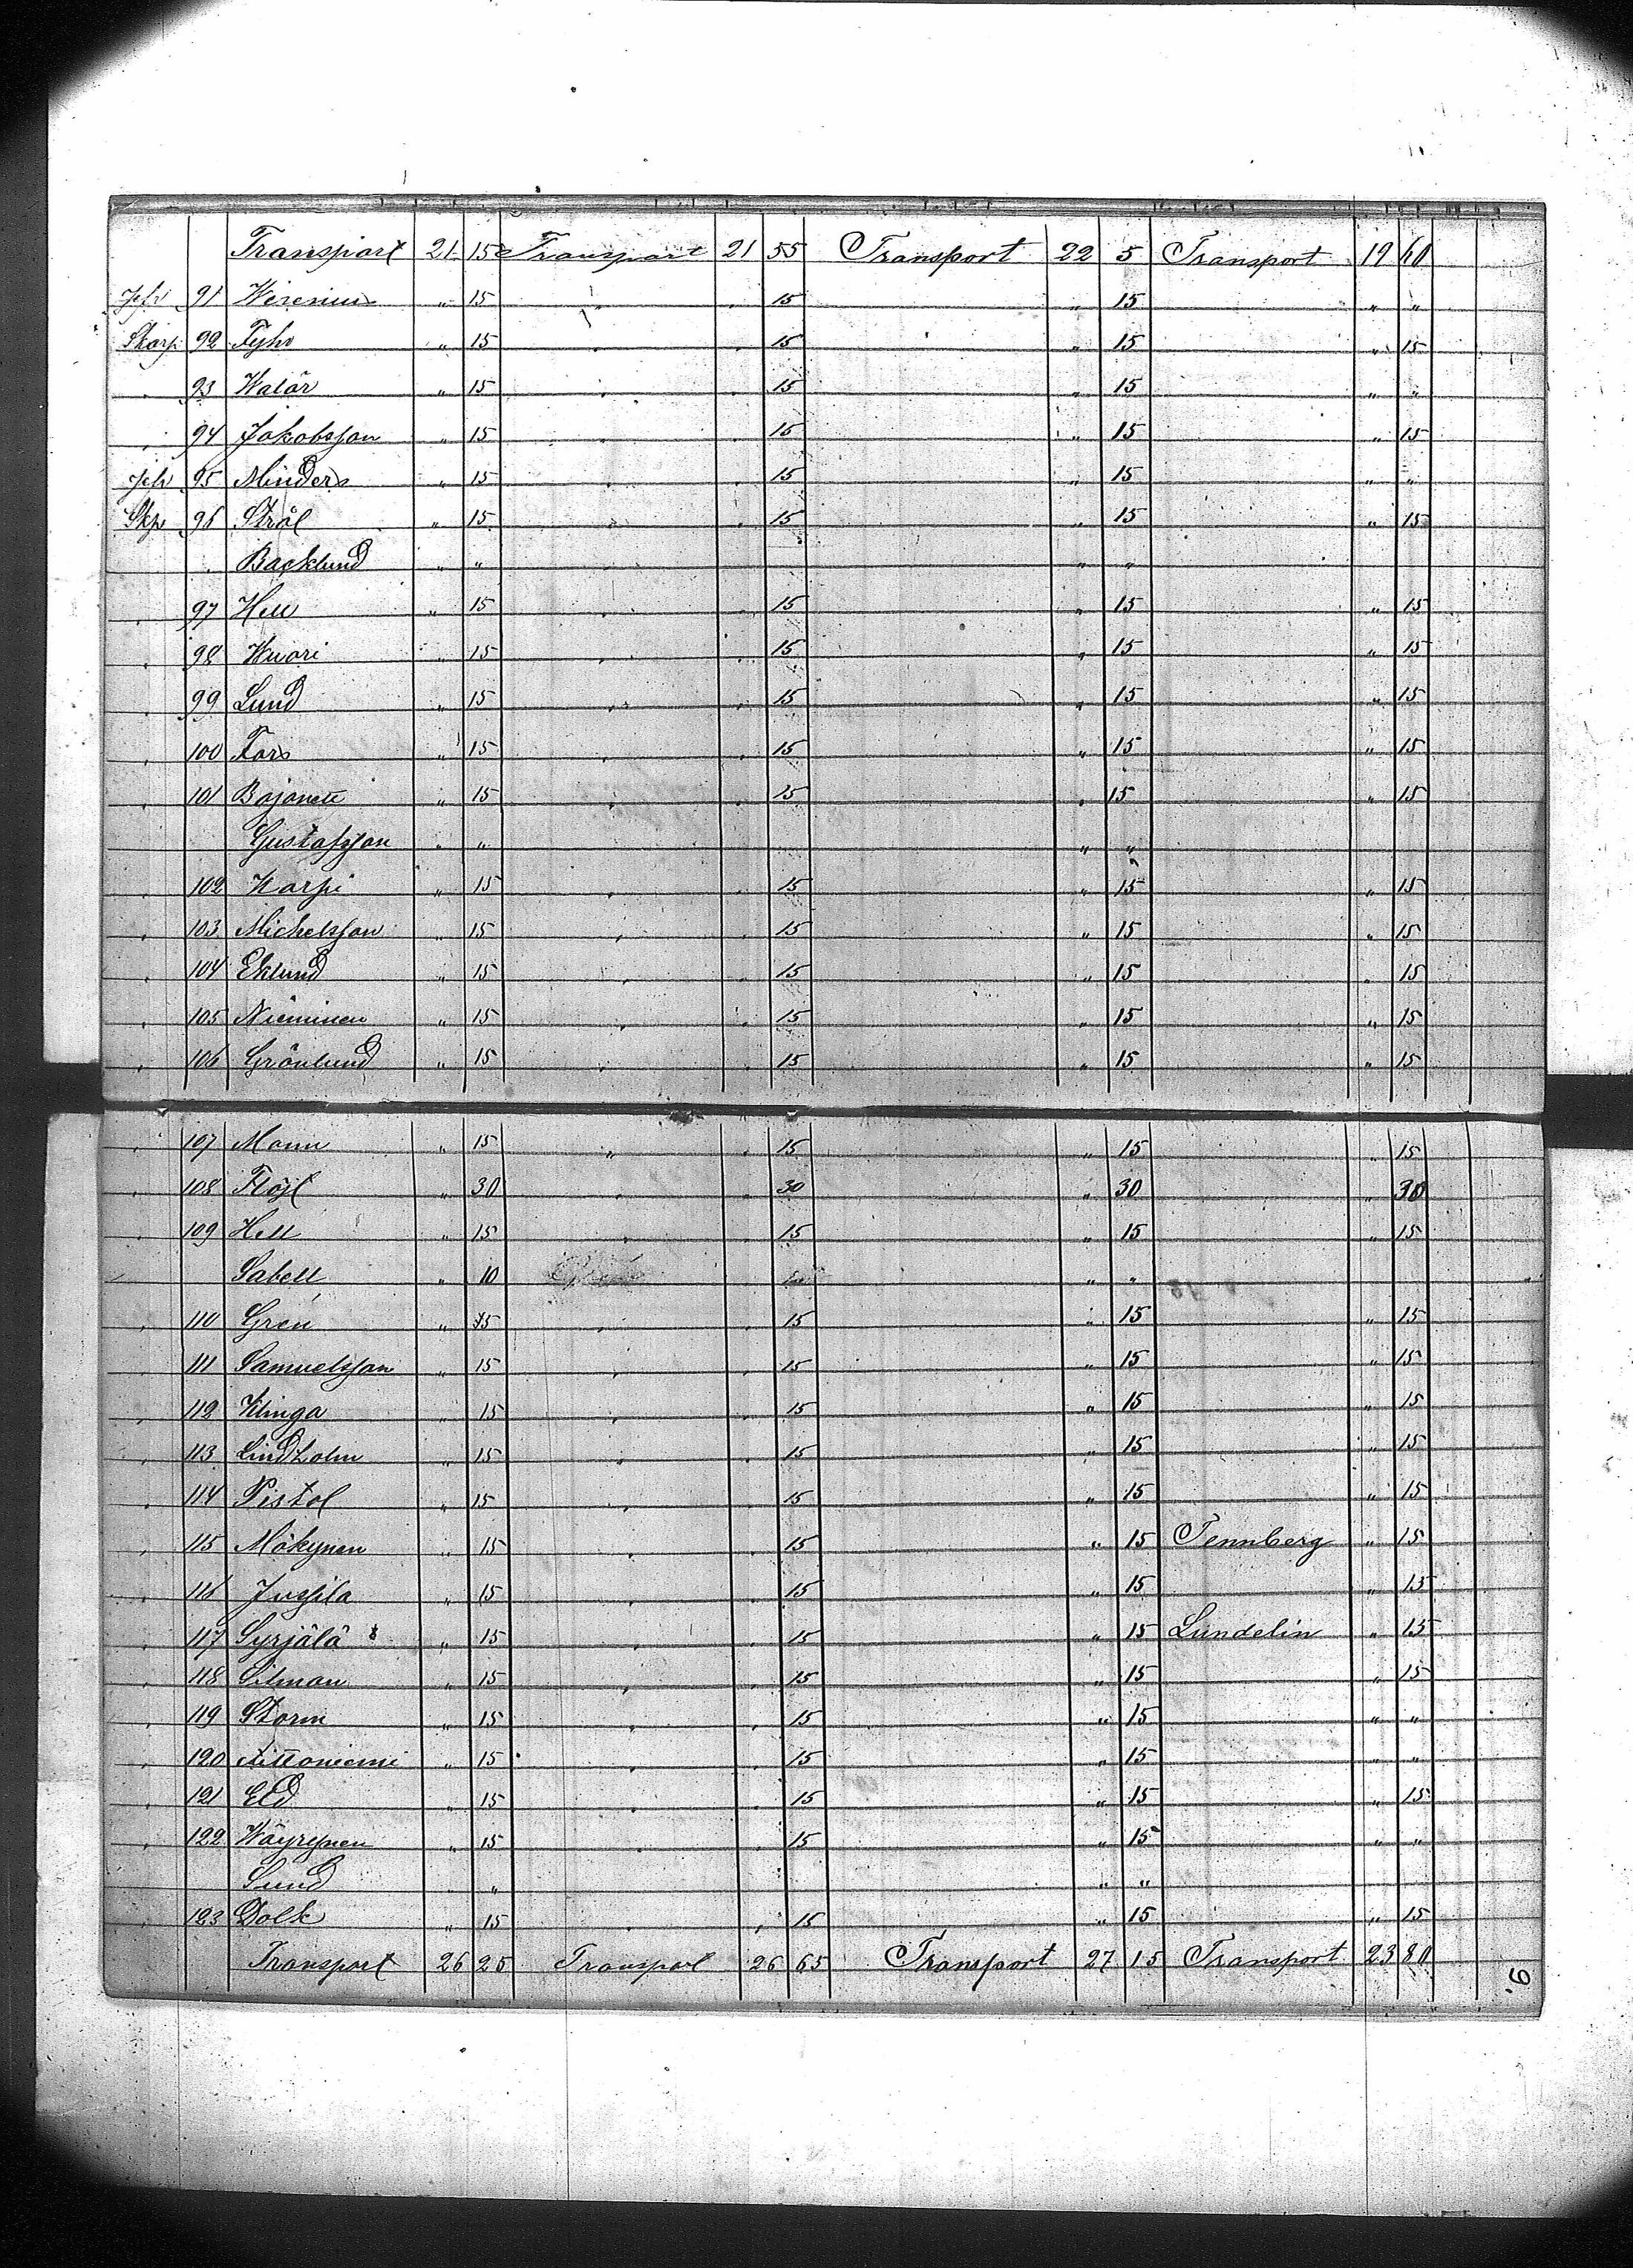 Transport 21 15 Transport 21 55 Transport 22 5 Transport 19 60
91 Wirenius " 15 " . 15 " 15 " "
Skarp. 92 Fyhr " 15 " . 15 " 15 " 15
" 93 Walör " 15 " . 15 " 15 " "
" 94 Jakobsson " 15 " . 15 " 15 " 15
95 Minders " 15 " . 15 " 15 " "
Skp 96 Strål " 15 " . 15 " 15 " 15
" Backlund " " " "
" 97 Hell " 15 " . 15 " 15 " 15
" 98 Wuori " 15 " . 15 " 15 " 15
" 99 Lund " 15 " . 15 " 15 " 15
" 100 Fors " 15 " . 15 " 15 " 15
" 101 Bajonett " 15 " . 15 " 15 " 15
Gustafsson " " " "
" 102 Karpi " 15 " . 15 " 15 " 15
" 103 Michelsson " 15 " . 15 " 15 " 15
" 104 Eklund " 15 " . 15 " 15 " 15
" 105 Nieminen " 15 " . 15 " 15 " 15
" 106 Grönlund " 15 " . 15 " 15 " 15
" 107 Mann " 15 " . 15 " 15 " 15
" 108 Flöjt " 30 " . 30 " 30 " 30
" 109 Hell " 15 " . 15 " 15 " 15
Sabell " 10 " "
" 110 Gren " 15 " . 15 " 15 " 15
" 111 Samuelsson " 15 " . 15 " 15 " 15
" 112 Klinga " 15 " . 15 " 15 " 15
" 113 Lindholm " 15 " . 15 " 15 " 15
" 114 Pistol " 15 " . 15 " 15 " 15
" 115 Mökynen " 15 " . 15 " 15 Tennberg " 15
" 116 Jussila " 15 " . 15 " 15 " 15
" 117 Syrjälä " 15 " . 15 " 15 Lundelin " 15
" 118 Silman " 15 " . 15 " 15 " 15
" 119 Storm " 15 " . 15 " 15 " "
" 120 Aittoniemi " 15 " . 15 " 15 " "
" 121 Eld " 15 " . 15 " 15 " 15
" 122 Wäyrynen " 15 " . 15 " 15 " "
Sund " " " "
" 123 Dolk " 15 " . 15 " 15 " 15
Transport 26 25 Transport 26 65 Transport 27 15 Transport 23 80
6.